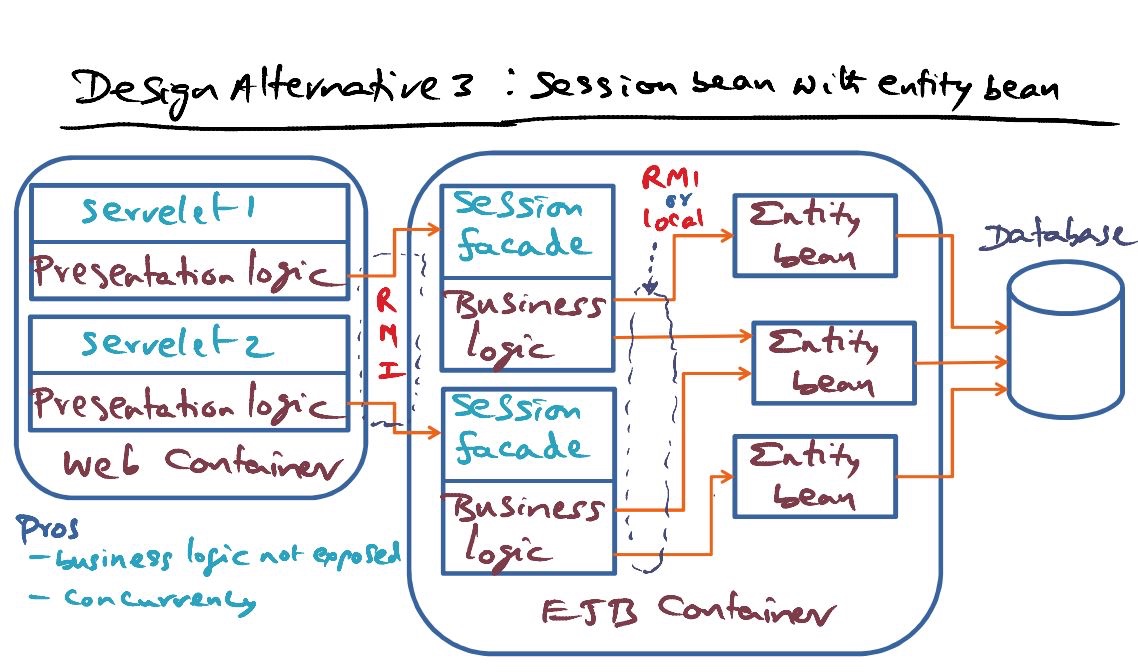 Design Alternative 3 : Session bean with entity bean
Servelet 1
Presentation logic
Servelet 2
Presentation logic
Web Container
RMI
Session
facade
Business
logic
Session
facade
Business
logic
RMI
or
local
Entity
bean
Entity
bean
Entity
bean
EJB Container
Database
Pros
- business logic not exposed
- Concurrency